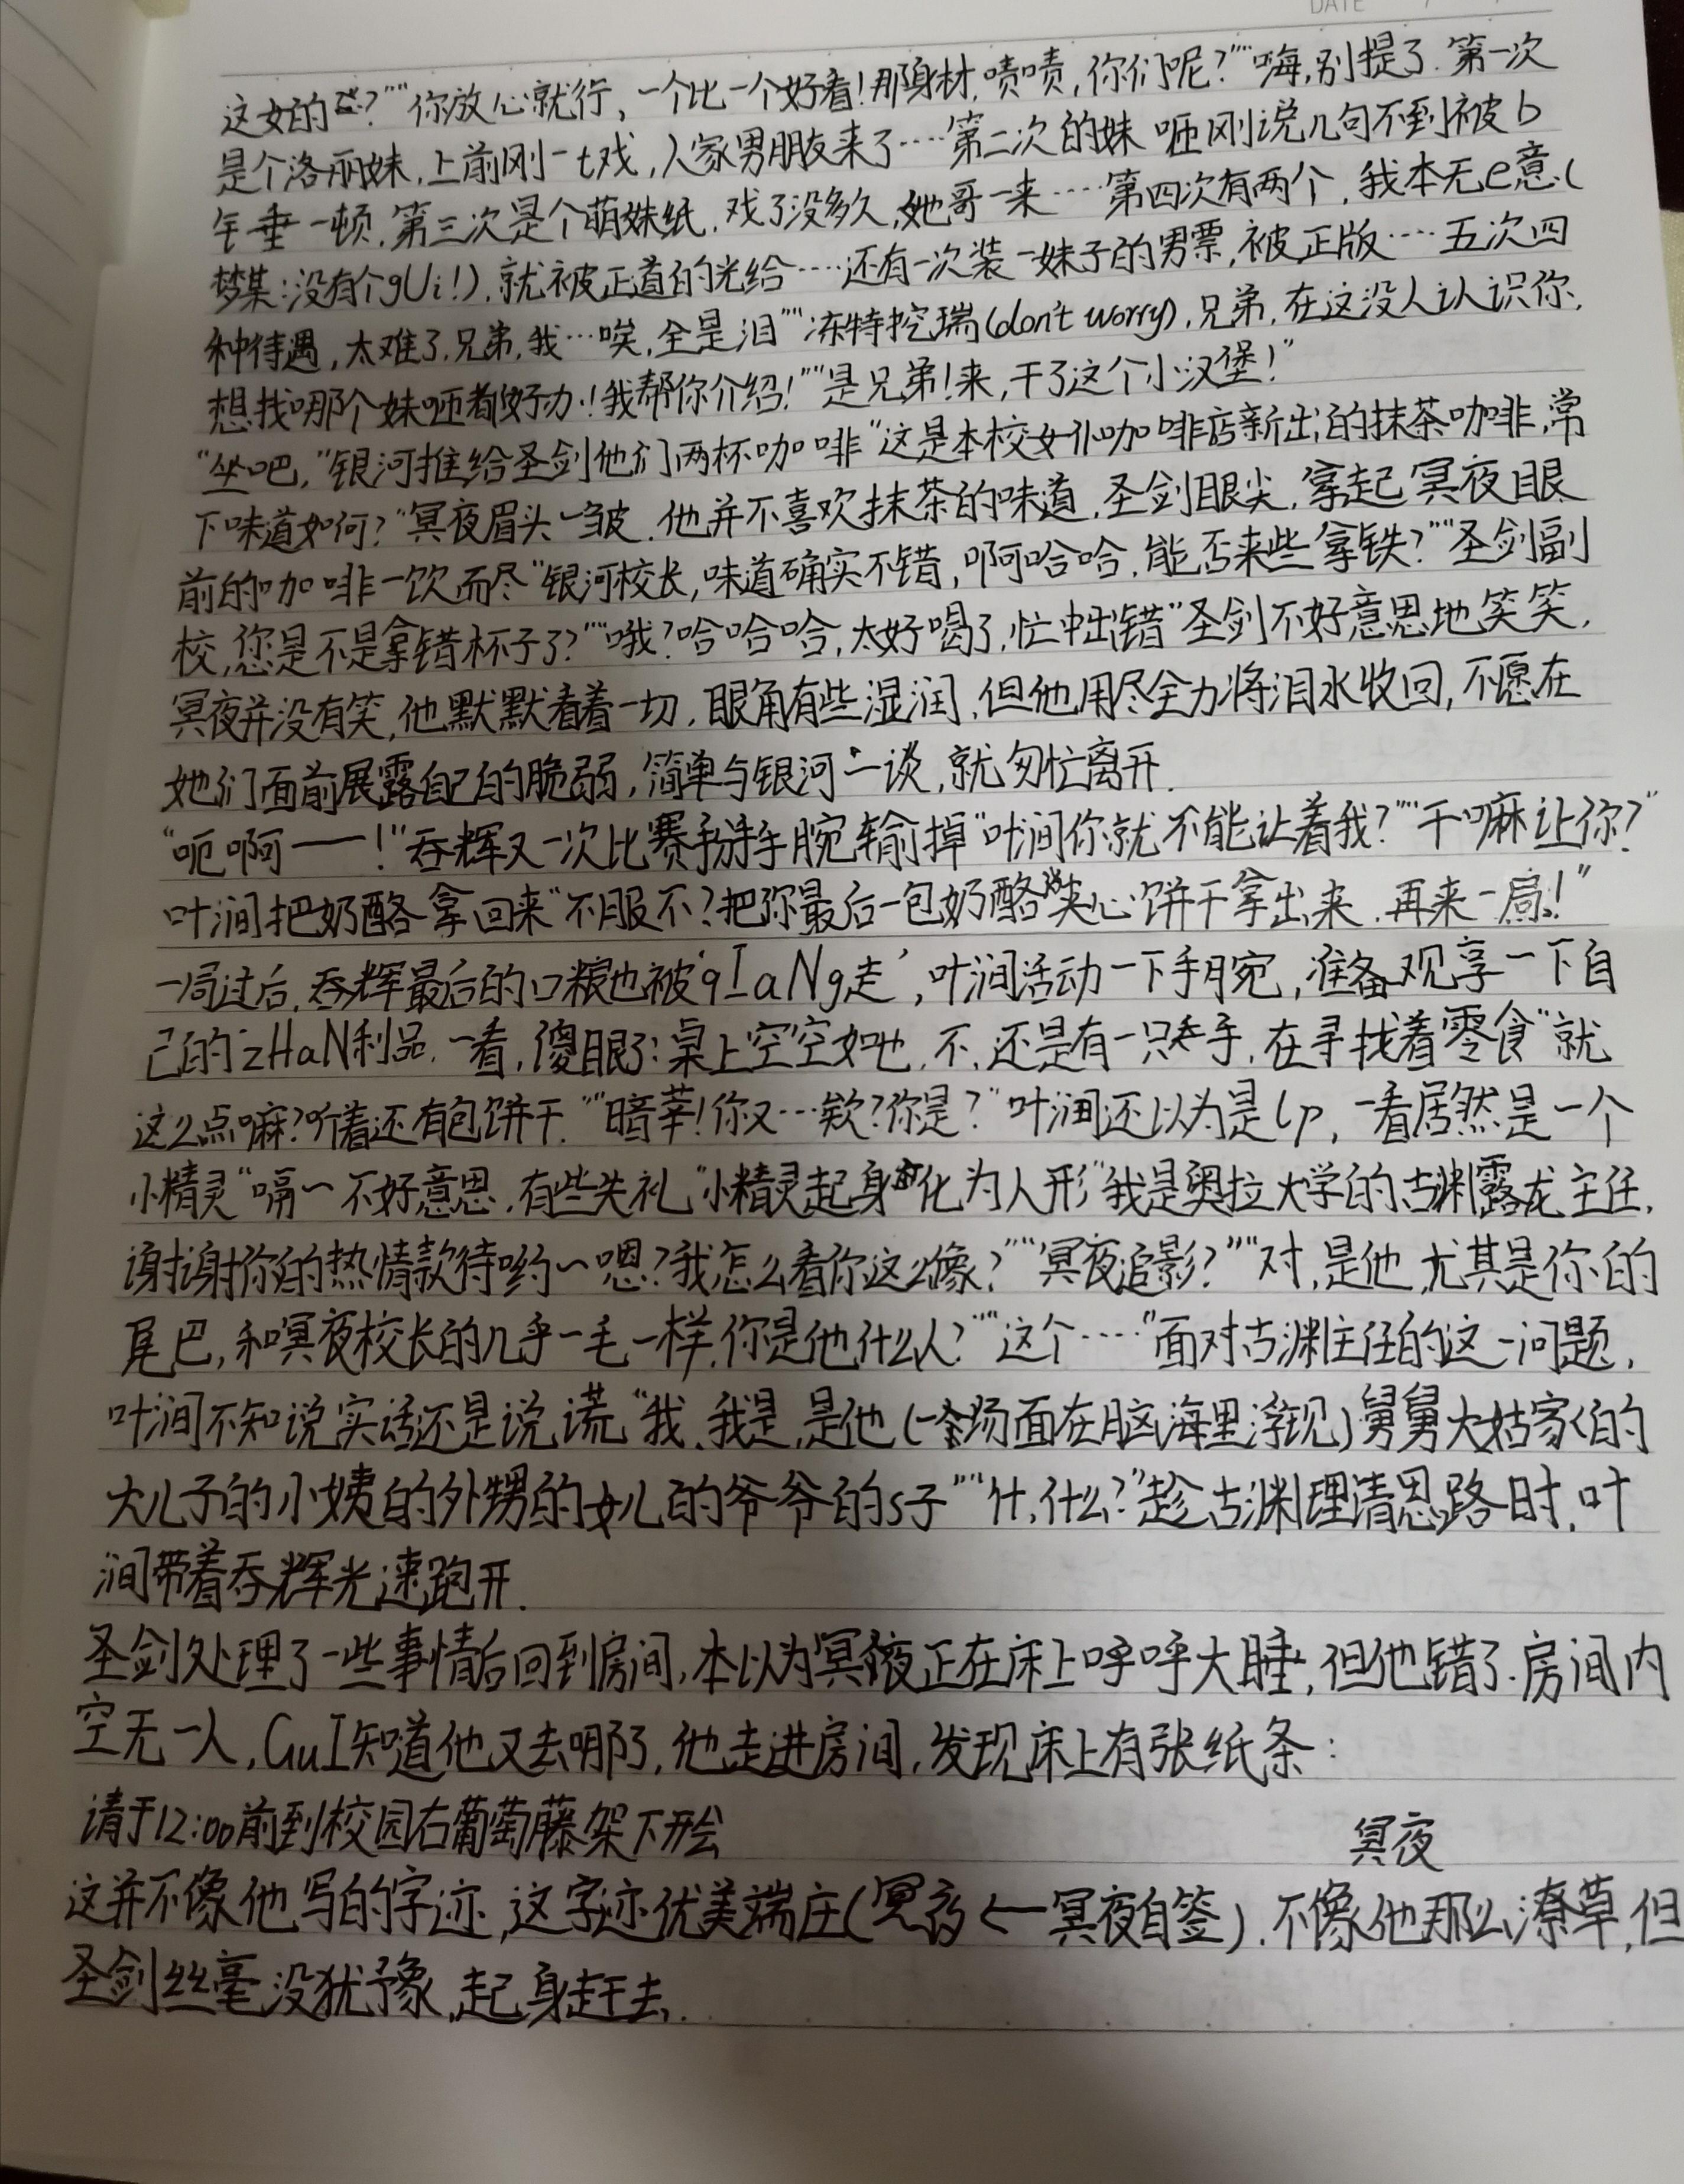 DATE
这女的怎?""你放心就行,一个比一个好看!那身材,啧啧,你们呢?""嗨,别提了.第一次
是个洛丽妹,上前刚一t戏,人家男朋友来了····第二次的妹咂刚说几句不到被b
年垂一顿,第三次是个萌妹纸,戏了没多久,她哥一来····第四次有两个,我本无e意(
梦某:没有个gUi!),就被正道的光给····还有一次装一妹子的男票,被正版····五次四
种待遇,太难了,兄弟,我···唉,全是泪""冻特挖瑞(don't worry),兄弟,在这没人认识你,
想找哪个妹咂都好办!我帮你介绍!""是兄弟!来,干了这个小汉堡!"
"坐吧,"银河推给圣剑他们两杯咖啡"这是本校女仆咖啡店新出的抹茶咖啡,常
下味道如何?"冥夜眉头一皱,他并不喜欢抹茶的味道,圣剑眼尖,拿起冥夜眼
前的咖啡一饮而尽"银河校长,味道确实不错,啊哈哈,能否来些拿铁?""圣剑副
校,您是不是拿错杯子了?""哦?哈哈哈,太好喝了,忙中出错"圣剑不好意思地笑笑,
冥夜并没有笑,他默默看着一切,眼角有些湿润,但他用尽全力将泪水收回,不愿在
她们面前展露自己的脆弱,简单与银河一谈,就匆忙离开.
"呃啊——!"吞辉又一次比赛掰手腕输掉"叶涧你就不能让着我?""干嘛让你?"
叶涧把奶酪拿回来"不服不?把你最后一包奶酪夹心饼干拿出来,再来一局!"
一局过后,吞辉最后的口粮也被'qIaNg走',叶涧活动一下手腕,准备观享一下自
己的'zHaN利品,一看,傻眼了:桌上空空如也,不,还是有一只手,在寻找着零食"就
这么点嘛?听着还有包饼干.""暗莘!你又···欸?你是?"叶涧还以为是lp,一看居然是一个
小精灵"嗝~不好意思,有些失礼"小精灵起身变化为人形"我是奥拉大学的古渊露龙主任,
谢谢你的热情款待哟~嗯?我怎么看你这么像?""冥夜追影?""对,是他,尤其是你的
尾巴,和冥夜校长的几乎一毛一样,你是他什么人?""这个····"面对古渊主任的这一问题,
叶涧不知说实话还是说谎"我,我是,是他(一个场面在脑海里浮现)舅舅大姑家的
大儿子的小姨的外甥的女儿的爷爷的s子""什,什么?"趁古渊理清思路时,叶
涧带着吞辉光速跑开.
圣剑处理了一些事情后回到房间,本以为冥夜正在床上呼呼大睡,但他错了.房间内
空无一人,GuI知道他又去哪了,他走进房间,发现床上有张纸条:
请于12:00前到校园右葡萄藤架下开会
冥夜
这并不像他写的字迹,这字迹优美端庄(冥夜←冥夜自签).不像他那么潦草,但
圣剑丝毫没犹豫,起身赶去.